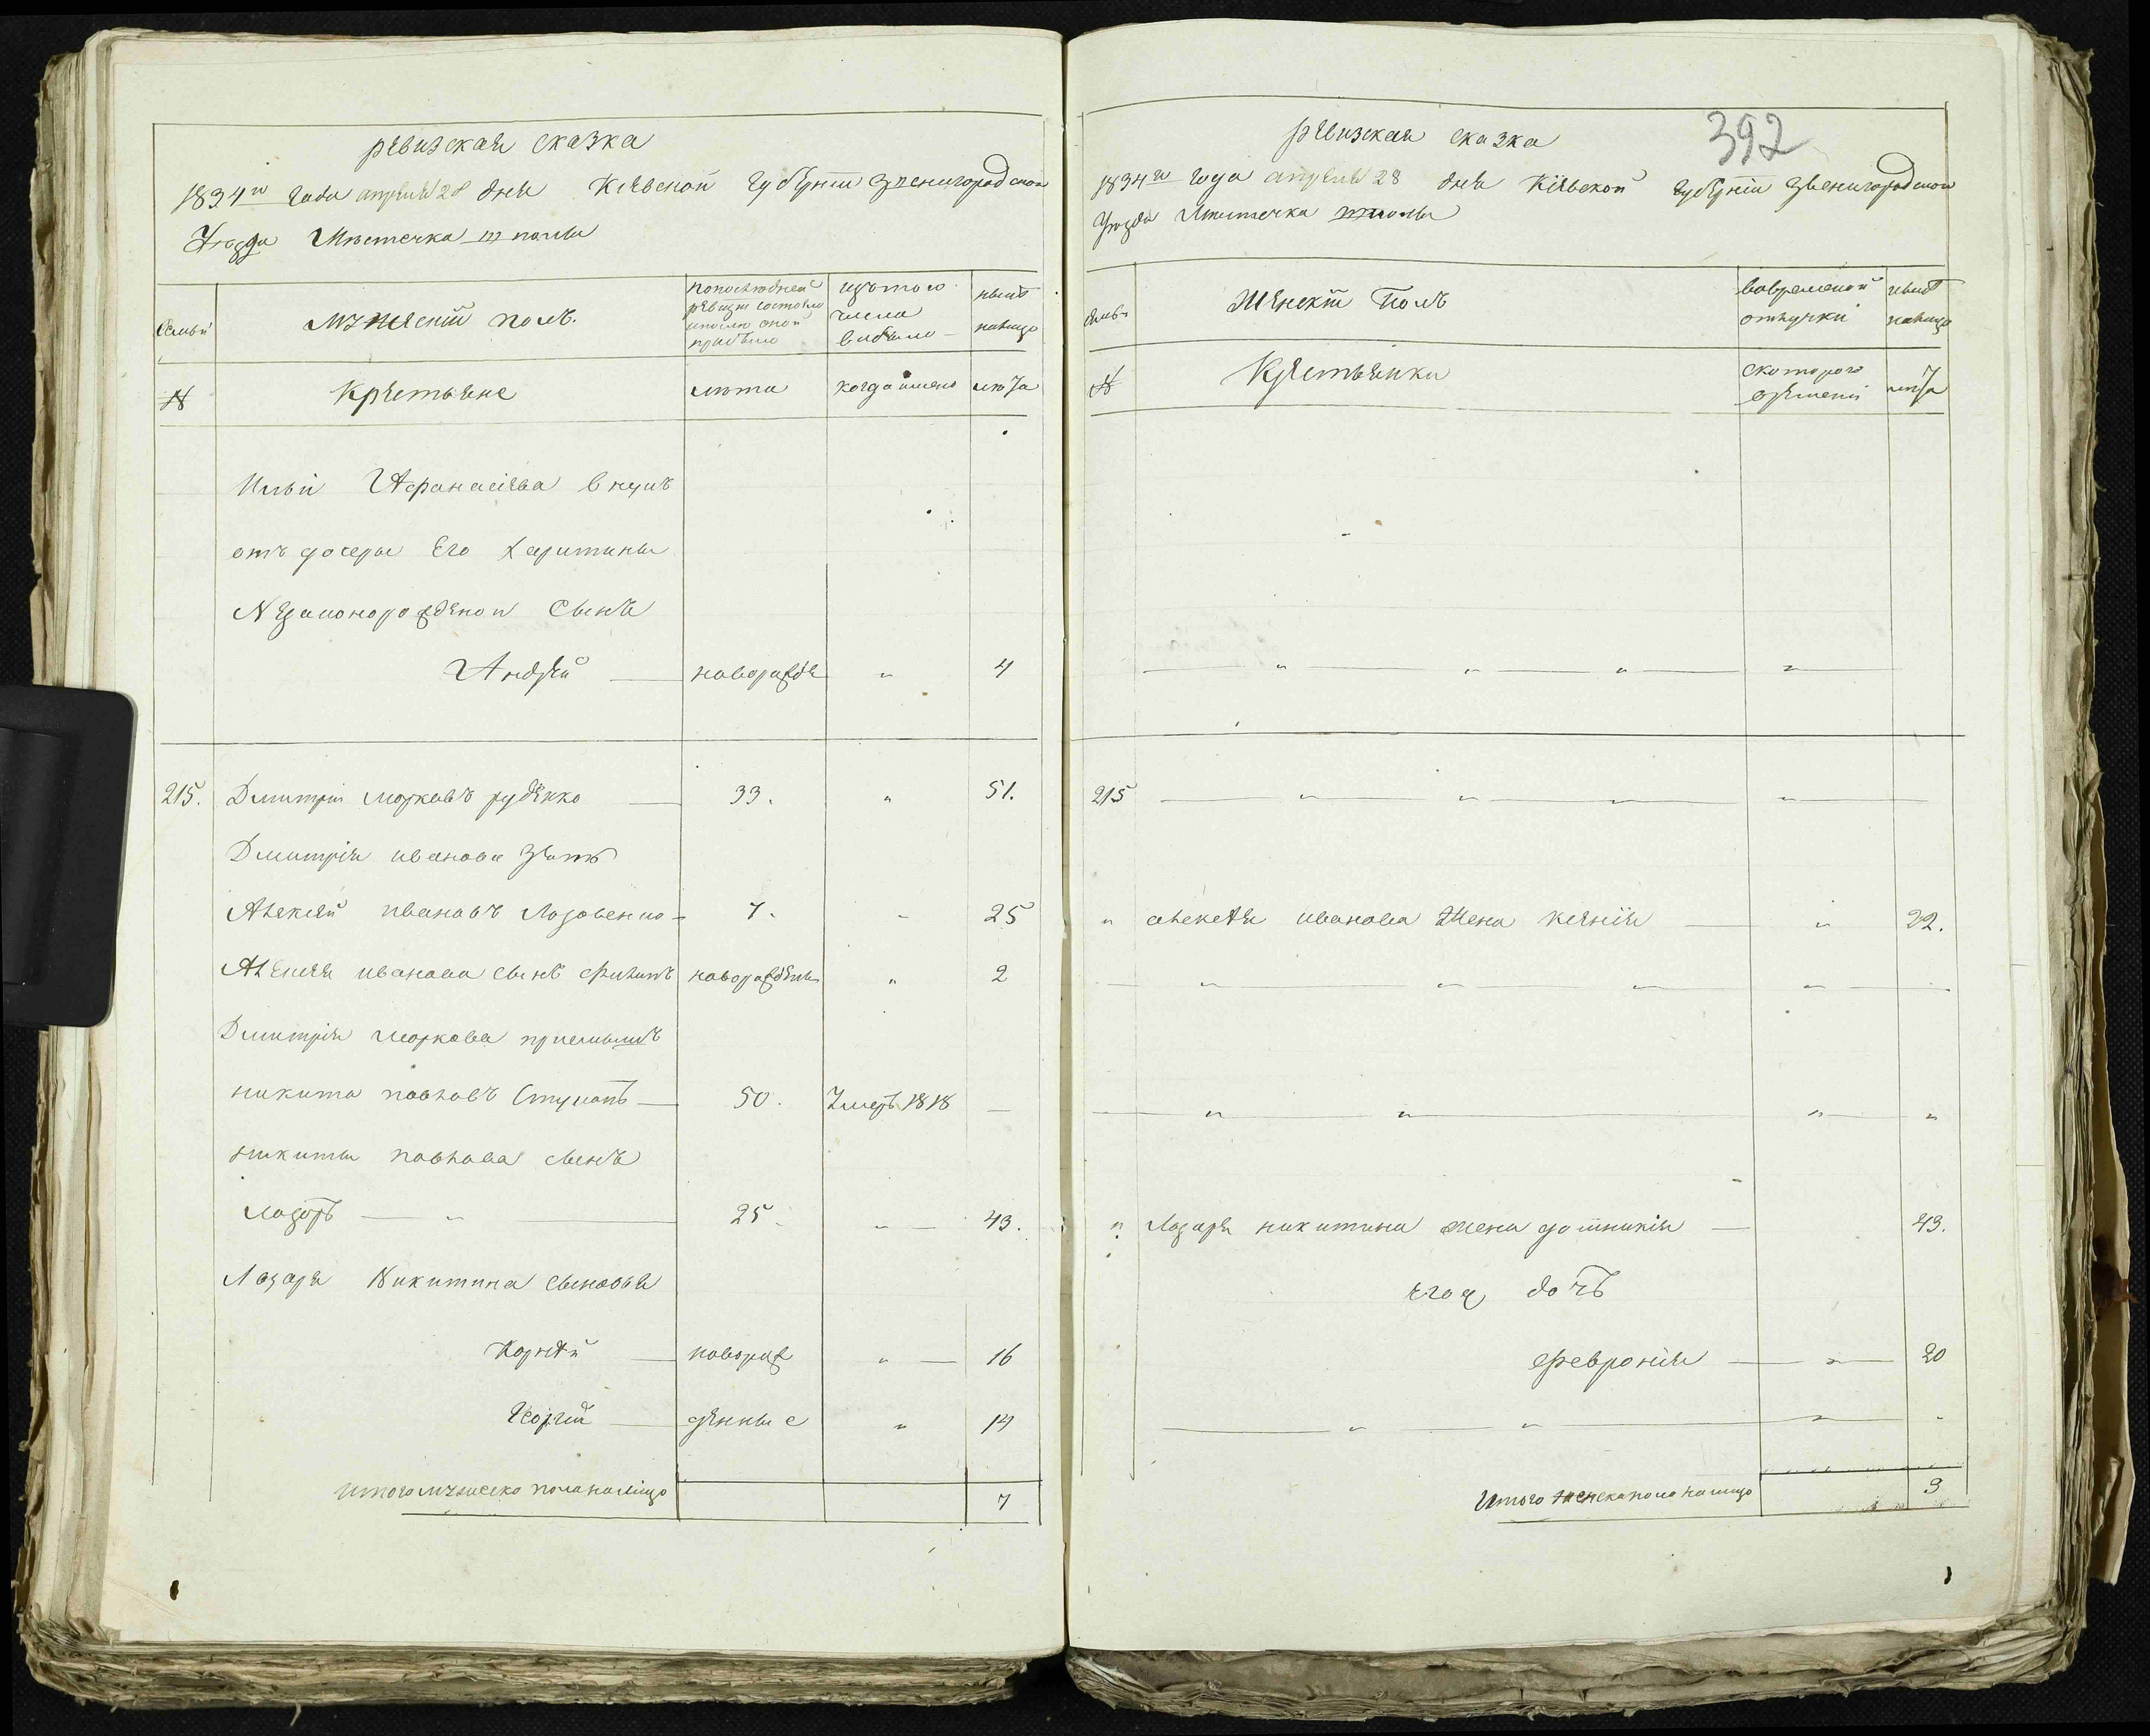 ревизская сказка
1834го года апреля 28 дня Киевской губернии Звенигородской
Уезда Местечка
Семьи
мужеский полъ.
Попоследней ревизии состояло ипосле оной прибыло
изътого числа выбыло
ныне налицо
№
Крестьяне
лета
когда имено
лета
Ильи Афанасиева внукъ
отъ дочери Его Харитины
Незаконорожденои сынъ
Андрей — новорожде " 4
215. Дмитрий Марковъ руденко — 33. " 51.
Дмитрия иванова зять
Алексей ивановъ Лозовенко - 7. - 25
Алексея иванова сынъ Филипъ новорожденъ " 2
Дмитрия Маркова приемышъ
никита павловъ Ступакъ — 50. Умеръ 1818 —
никиты павлова сынъ
Лазоръ — " — 25. " — 43.
Лазаря Никитина сыновья
Корней — новорож " — 16
Георгий — денные " 14
итого мужеска пола налицо 7
392
ревизская сказка
1834го года апреля 28 дня Киевской губернии Звенигородской
Уезда Местечка
семьи
Женский Полъ
вовременной отлучки
ныне налицо
№
Крестьянки
скоторого времени
лета
— " — " — " — " —
215 — " — " — " — " —
" алексея иванова Жена ксения — " 22.
— " — " — " — " —
— " — " — " — "
" Лазаря никитина жена домникия — 43.
его дочь
феврония — " — 20
— " — " — " — "
Итого женска пола налицо 3